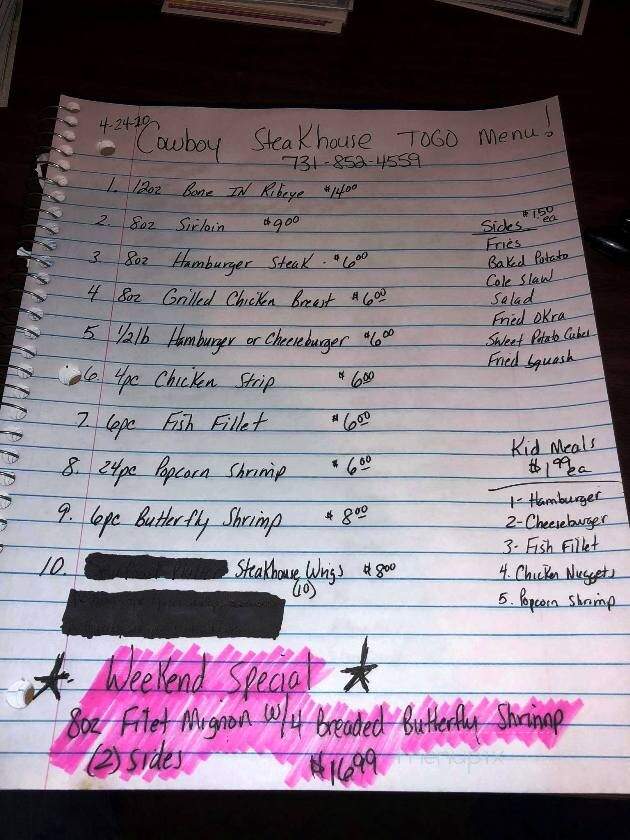 4-24-20
Cowboy Steakhouse TOGO Menu!
731-852-4559
1. 12oz Bone IN Ribeye $14.00
2. 8oz Sirloin $9.00
3. 8oz Hamburger Steak $6.00
4 8oz Grilled Chicken Breast $6.00
5. 1/2lb Hamburger or Cheeseburger $6.00
6. 4pc Chicken Strip $6.00
7. 6pc Fish Fillet $6.00
8. 24pc Popcorn Shrimp $6.00
9. 6pc Butterfly Shrimp $8.00
10. Steakhouse Wings $8.00
(10)
Sides $1.50 ea
Fries
Baked Potato
Cole Slaw
Salad
Fried Okra
Sweet Potato Cubes
Fried Squash
Kid Meals
$1.99 ea
1- Hamburger
2- Cheeseburger
3- Fish Fillet
4. Chicken Nuggets
5. Popcorn Shrimp
Weekend Special
8oz Filet Mignon W/4 Breaded Butterfly Shrimp
(2) Sides $16.99